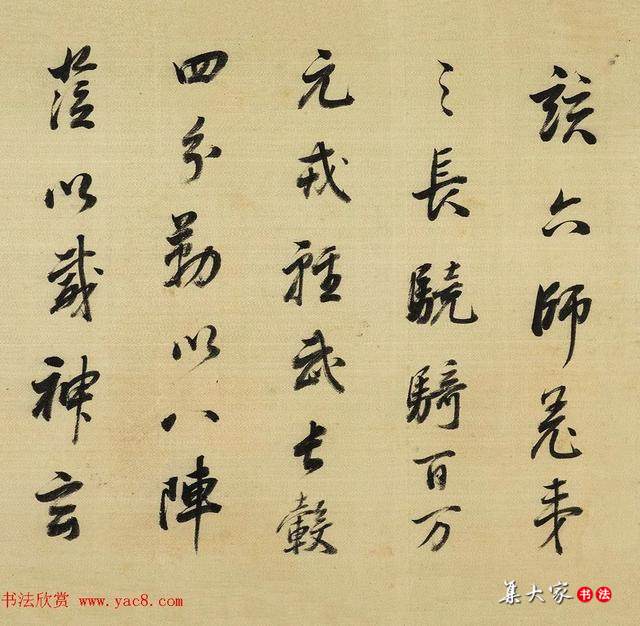 該六師羌夷
之長驍騎百万
元戎輕武長轂
四分勒以八陣
蒞以威神玄
书法欣赏 www.yac8.com
集大家书法